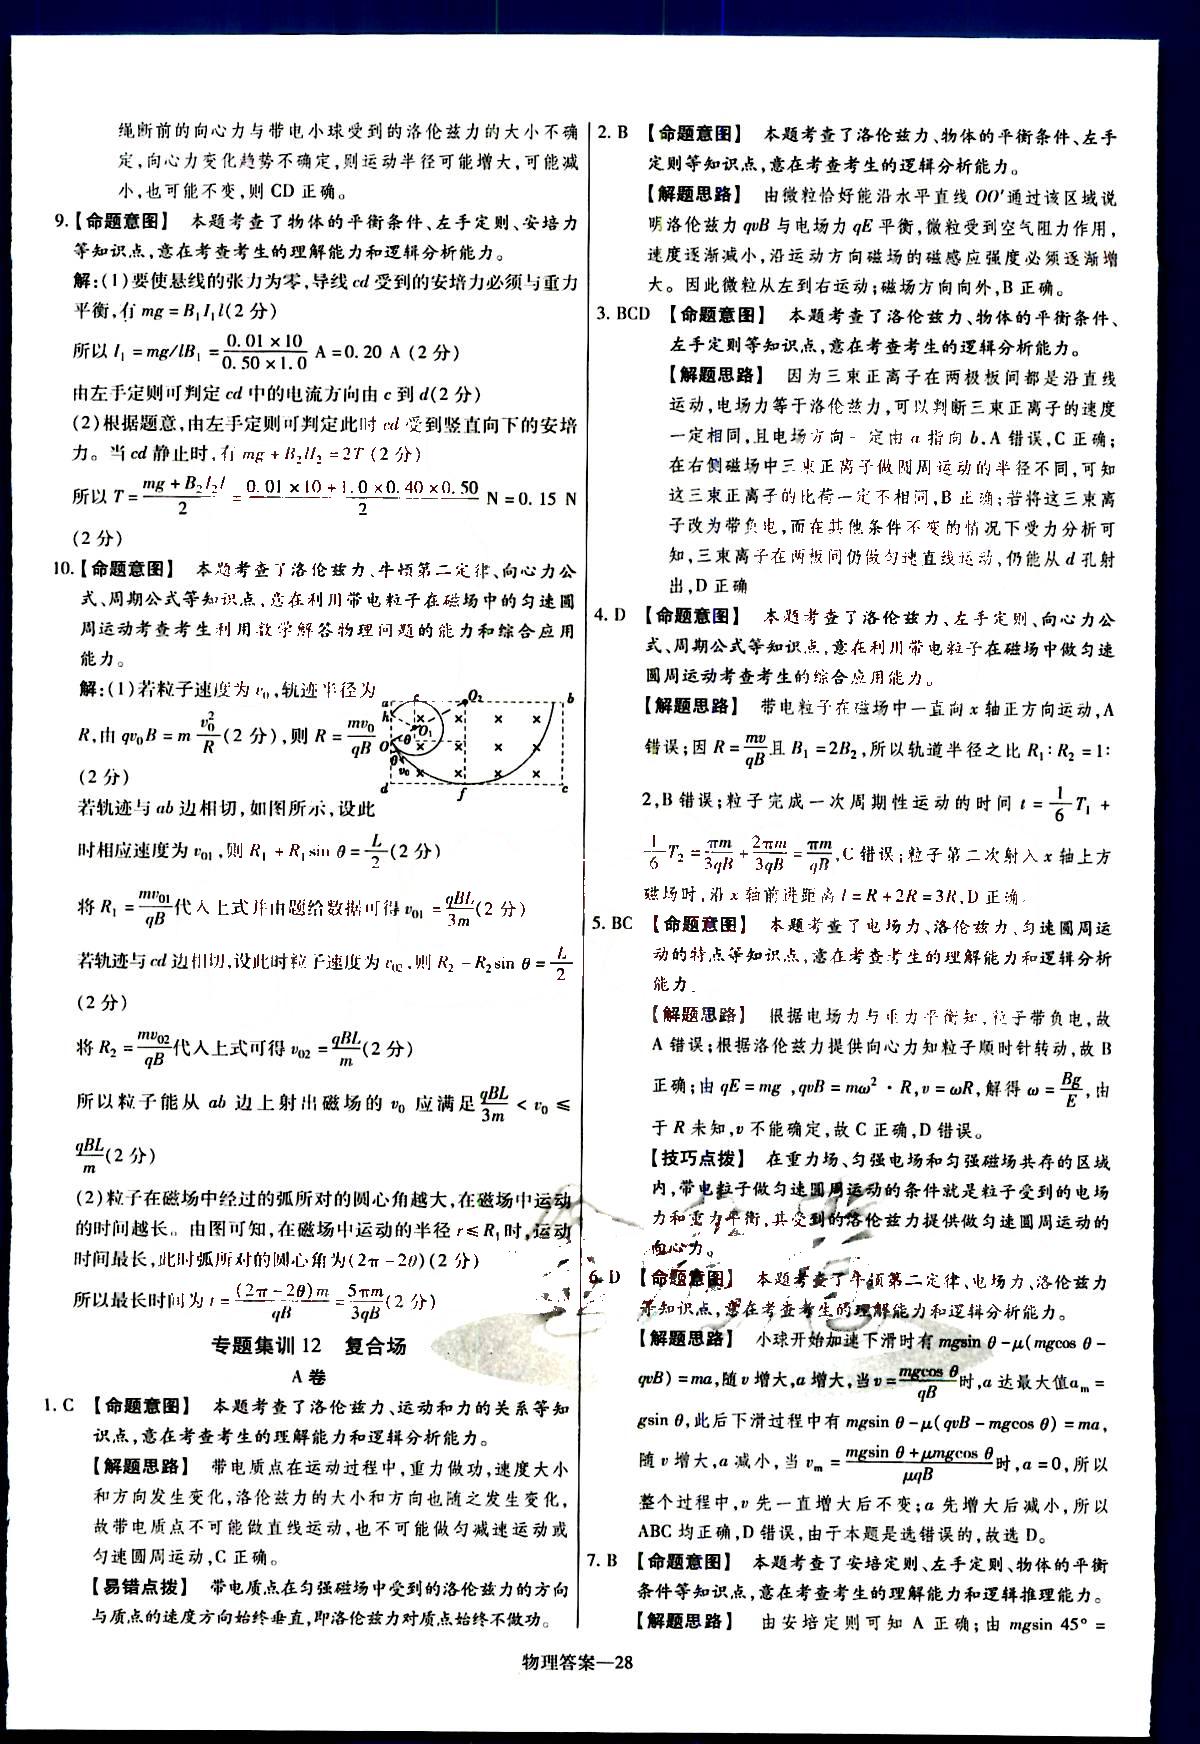 绳断前的向心力与带电小球受到的洛伦兹力的大小不确
定,向心力变化趋势不确定,则运动半径可能增大,可能减
小,也可能不变,则 CD 正确。
9.【命题意图】 本题考查了物体的平衡条件、左手定则、安培力
等知识点,意在考查考生的理解能力和逻辑分析能力。
解:(1)要使悬线的张力为零,导线 cd 受到的安培力必须与重力
平衡,有 mg = B₁I₁l(2 分)
所以 I₁ = mg/lB₁ = (0.01×10)/(0.50×1.0) A = 0.20 A (2 分)
由左手定则可判定 cd 中的电流方向由 c 到 d(2 分)
(2)根据题意,由左手定则可判定此时 cd 受到竖直向下的安培
力。当 cd 静止时,有 mg + B₂Il₂ = 2T (2 分)
所以 T = (mg + B₂I₂l)/2 = (0.01×10+1.0×0.40×0.50)/2 N = 0.15 N
(2 分)
10.【命题意图】 本题考查了洛伦兹力、牛顿第二定律、向心力公
式、周期公式等知识点,意在利用带电粒子在磁场中的匀速圆
周运动考查考生利用数学解答物理问题的能力和综合应用
能力。
解:(1)若粒子速度为 v₀,轨迹半径为
R,由 qv₀B = m v₀²/R (2 分),则 R = mv₀/qB
(2 分)
若轨迹与 ab 边相切,如图所示,设此
时相应速度为 v₀₁,则 R₁ + R₁sin θ = L/2 (2 分)
将 R₁ = mv₀₁/qB 代入上式并由题给数据可得 v₀₁ = qBL/3m (2 分)
若轨迹与 cd 边相切,设此时粒子速度为 v₀₂,则 R₂ − R₂sin θ = L/2
(2 分)
将 R₂ = mv₀₂/qB 代入上式可得 v₀₂ = qBL/m (2 分)
所以粒子能从 ab 边上射出磁场的 v₀ 应满足 qBL/3m < v₀ ≤
qBL/m (2 分)
(2)粒子在磁场中经过的弧所对的圆心角越大,在磁场中运动
的时间越长。由图可知,在磁场中运动的半径 r ≤ R₁ 时,运动
时间最长,此时弧所对的圆心角为(2π − 2θ)(2 分)
所以最长时间为 t = (2π − 2θ)m/qB = 5πm/3qB (2 分)
专题集训 12 复合场
A 卷
1. C 【命题意图】 本题考查了洛伦兹力、运动和力的关系等知
识点,意在考查考生的理解能力和逻辑分析能力。
【解题思路】 带电质点在运动过程中,重力做功,速度大小
和方向发生变化,洛伦兹力的大小和方向也随之发生变化,
故带电质点不可能做直线运动,也不可能做匀减速运动或
匀速圆周运动,C 正确。
【易错点拨】 带电质点在匀强磁场中受到的洛伦兹力的方向
与质点的速度方向始终垂直,即洛伦兹力对质点始终不做功。
2. B 【命题意图】 本题考查了洛伦兹力、物体的平衡条件、左手
定则等知识点,意在考查考生的逻辑分析能力。
【解题思路】 由微粒恰好能沿水平直线 OO′通过该区域说
明洛伦兹力 qvB 与电场力 qE 平衡,微粒受到空气阻力作用,
速度逐渐减小,沿运动方向磁场的磁感应强度必须逐渐增
大。因此微粒从左到右运动;磁场方向向外,B 正确。
3. BCD 【命题意图】 本题考查了洛伦兹力、物体的平衡条件、
左手定则等知识点,意在考查考生的逻辑分析能力。
【解题思路】 因为三束正离子在两极板间都是沿直线
运动,电场力等于洛伦兹力,可以判断三束正离子的速度
一定相同,且电场方向一定由 a 指向 b,A 错误,C 正确;
在右侧磁场中三束正离子做圆周运动的半径不同,可知
这三束正离子的比荷一定不相同,B 正确;若将这三束离
子改为带负电,而在其他条件不变的情况下受力分析可
知,三束离子在两板间仍做匀速直线运动,仍能从 d 孔射
出,D 正确
4. D 【命题意图】 本题考查了洛伦兹力、左手定则、向心力公
式、周期公式等知识点,意在利用带电粒子在磁场中做匀速
圆周运动考查考生的综合应用能力。
【解题思路】 带电粒子在磁场中一直向 x 轴正方向运动,A
错误;因 R = mv/qB 且 B₁ = 2B₂,所以轨道半径之比 R₁∶R₂ = 1∶
2,B 错误;粒子完成一次周期性运动的时间 t = 1/6 T₁ +
1/6 T₂ = πm/3qB + 2πm/3qB = πm/qB,C 错误;粒子第二次射入 x 轴上方
磁场时,沿 x 轴前进距离 l = R + 2R = 3R,D 正确。
5. BC 【命题意图】 本题考查了电场力、洛伦兹力、匀速圆周运
动的特点等知识点,意在考查考生的理解能力和逻辑分析
能力。
【解题思路】 根据电场力与重力平衡知,粒子带负电,故
A 错误;根据洛伦兹力提供向心力知粒子顺时针转动,故 B
正确;由 qE = mg ,qvB = mω²·R,v = ωR,解得 ω = Bg/E,由
于 R 未知,v 不能确定,故 C 正确,D 错误。
【技巧点拨】 在重力场、匀强电场和匀强磁场共存的区域
内,带电粒子做匀速圆周运动的条件就是粒子受到的电场
力和重力平衡,其受到的洛伦兹力提供做匀速圆周运动的
向心力。
6. D 【命题意图】 本题考查了牛顿第二定律、电场力、洛伦兹力
等知识点,意在考查考生的理解能力和逻辑分析能力。
【解题思路】 小球开始加速下滑时有 mgsin θ − μ(mgcos θ −
qvB) = ma,随 v 增大,a 增大,当 v = mgcos θ/qB 时,a 达最大值 aₘ =
gsin θ,此后下滑过程中有 mgsin θ − μ(qvB − mgcos θ) = ma,
随 v 增大,a 减小,当 vₘ = (mgsin θ + μmgcos θ)/μqB 时,a = 0,所以
整个过程中,v 先一直增大后不变;a 先增大后减小,所以
ABC 均正确,D 错误,由于本题是选错误的,故选 D。
7. B 【命题意图】 本题考查了安培定则、左手定则、物体的平衡
条件等知识点,意在考查考生的理解能力和逻辑推理能力。
【解题思路】 由安培定则可知 A 正确;由 mgsin 45° =
物理答案—28